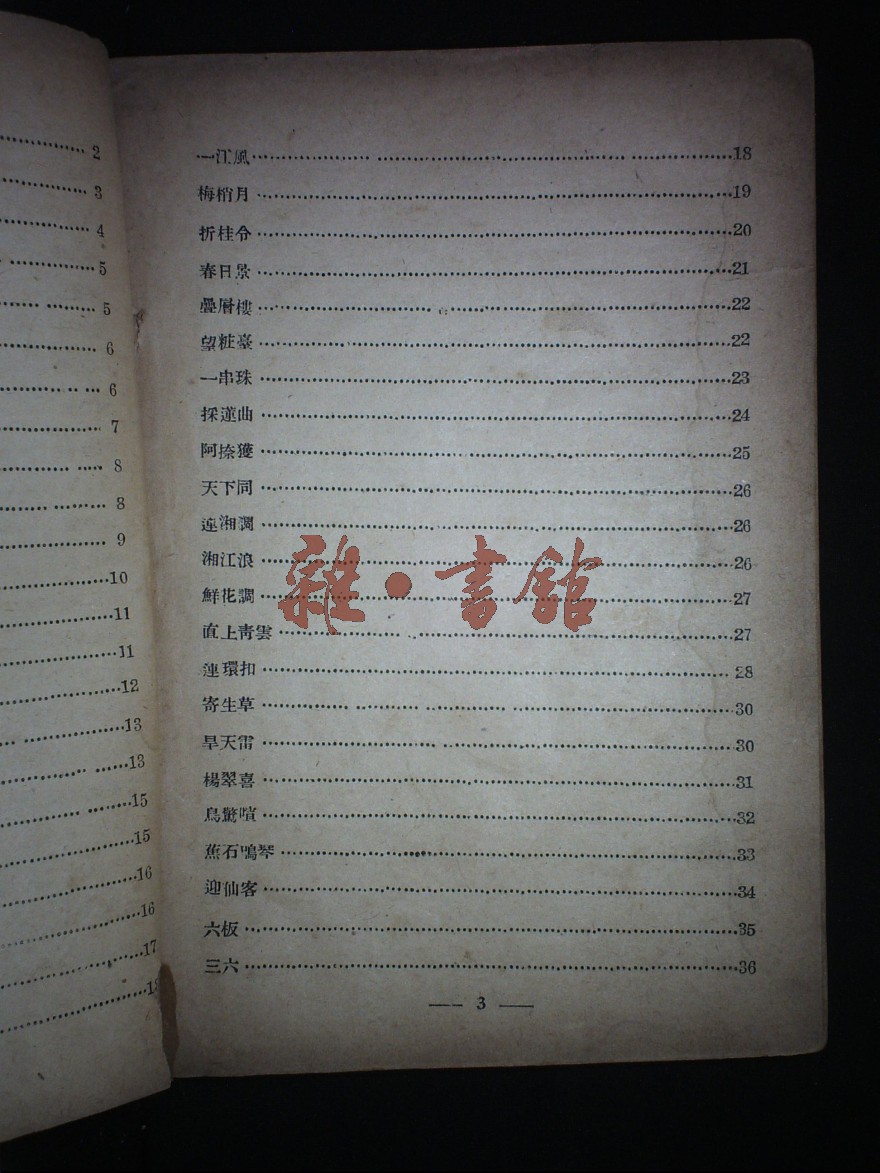 2
3
4
5
5
6
6
7
8
8
9
10
11
11
12
13
13
15
15
16
16
17
一江風 18
梅梢月 19
折桂令 20
春日景 21
疊層樓 22
望粧臺 22
一串珠 23
採蓮曲 24
阿捺獲 25
天下同 26
連湘調 26
湘江浪 26
鮮花調 27
直上靑雲 27
連環扣 28
寄生草 30
旱天雷 30
楊翠喜 31
鳥驚喧 32
蕉石鳴琴 33
迎仙客 34
六板 35
三六 36
3
雜·書館